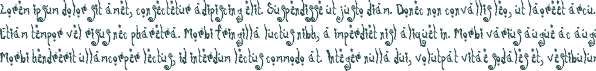 Lorem ipsum dolor sit amet, consectetur adipiscing elit. Suspendisse ut justo diam. Donec non convallis leo, ut laoreet arcu.
Etiam tempor vel risus nec pharetra. Morbi fringilla luctus nibh, a imperdiet nisl aliquet in. Morbi varius augue ac aug
Morbi hendrerit ullamcorper lectus, id interdum lectus commodo at. Integer nulla dui, volutpat vitae sodales et, vestibulum